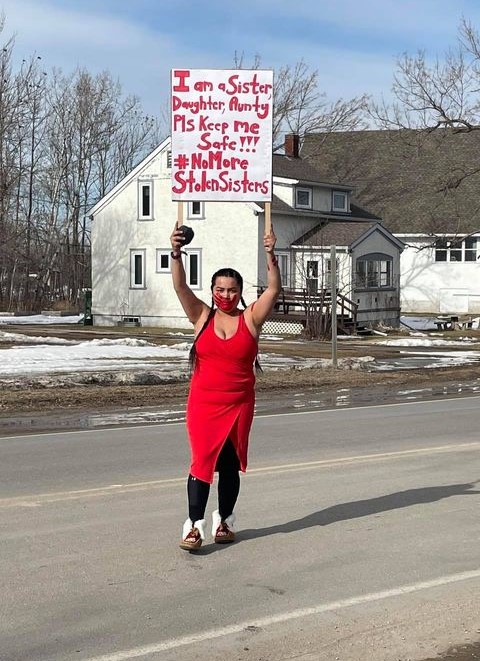 I am a Sister,
Daughter, Aunty
Pls Keep me
Safe!!!
#NoMore
StolenSisters